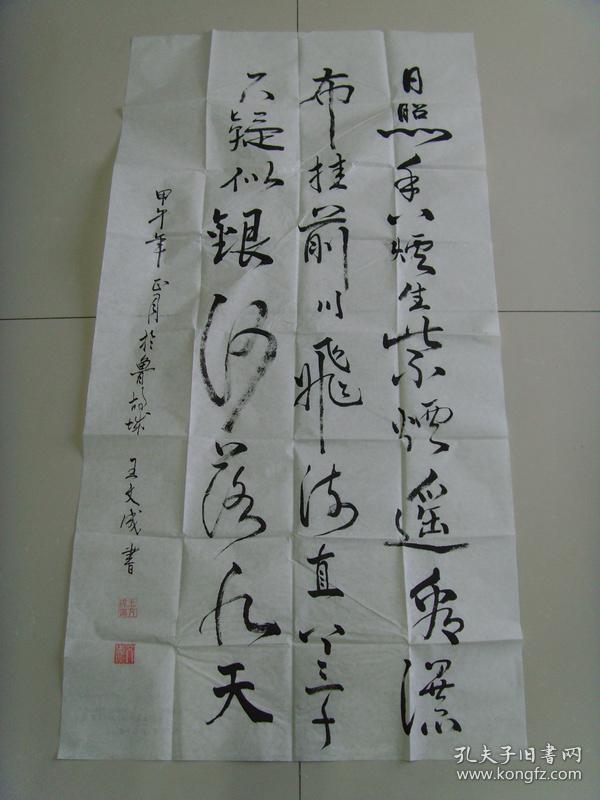 日照香爐生紫煙遥看瀑
布挂前川飛流直下三千
尺疑似銀河落九天
甲午年正月於魯故城 王文成書
孔夫子旧書网
www.kongfz.com